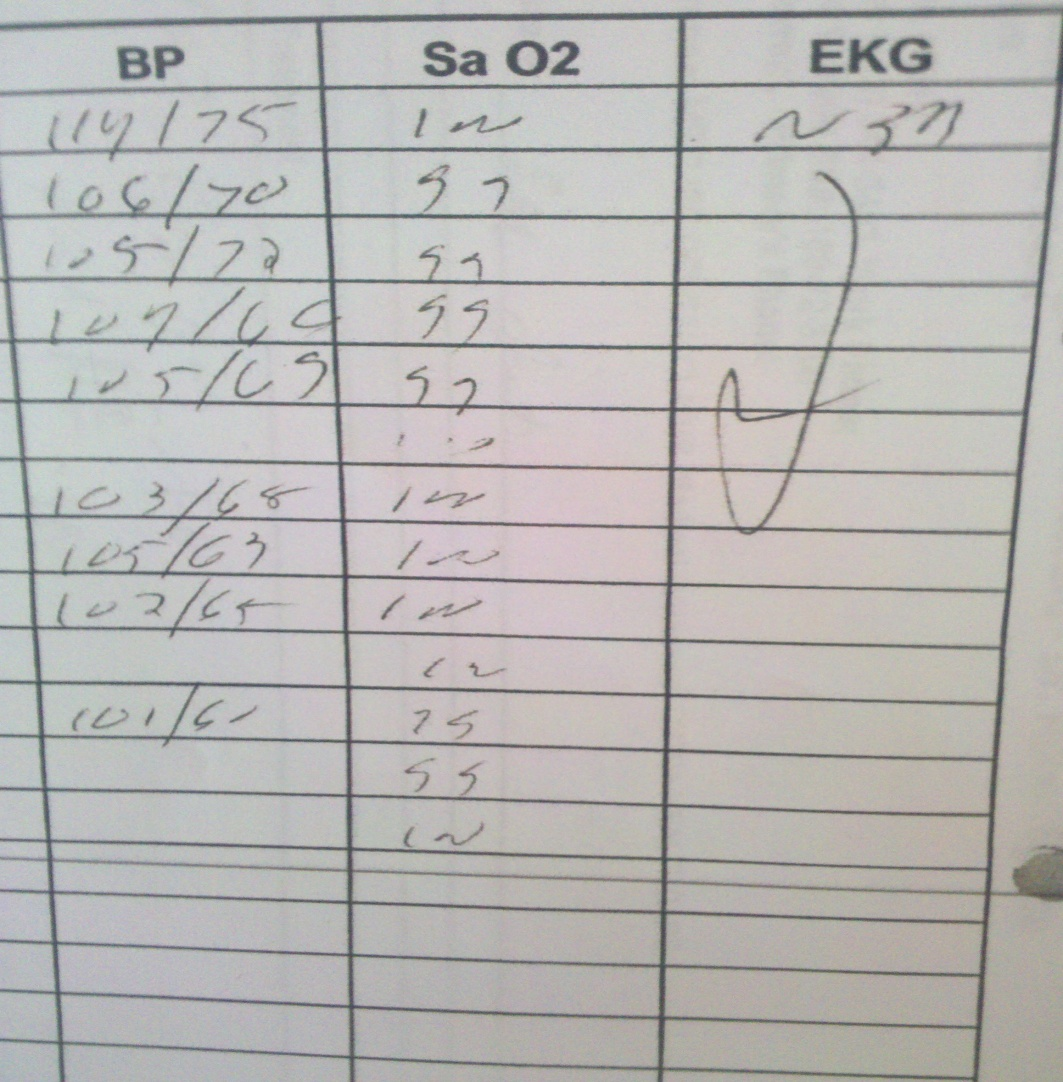 BP Sa O2 EKG
114/75 100 NSR
106/70 97
105/72 99
107/66 99
105/69 97
100
103/68 100
105/63 100
102/65 100
100
101/
99
100